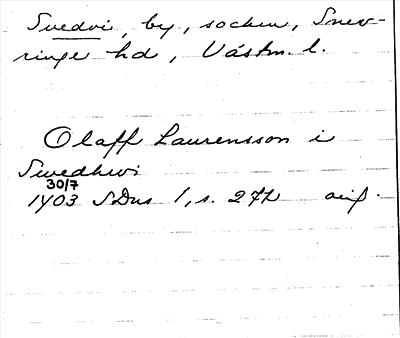 Svedvi, by, socken, Snev-
ringe hd, Västm. l.
Olaff Laurensson i
Swedhwi
30/7
1403 SDns 1, s. 272 avs.